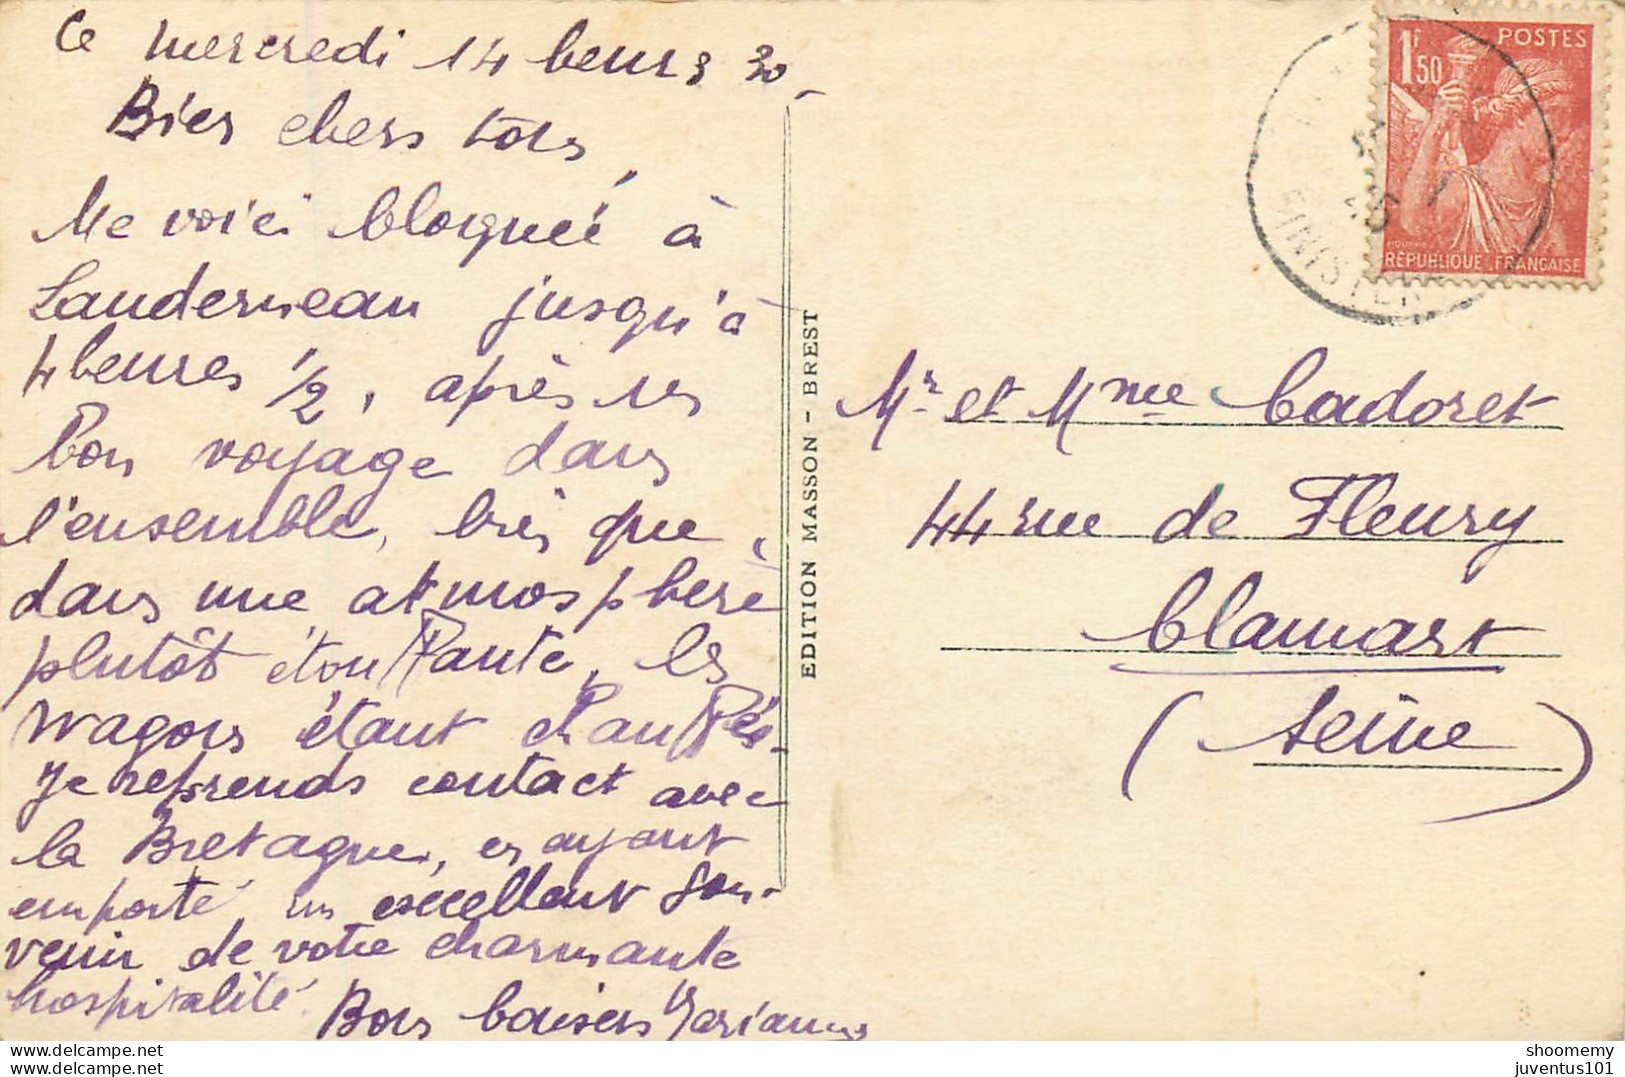 Ce mercredi 14 heures 30
Bien chers tous,
Me voici bloquée à
Landerneau jusqu'à
4 heures 1/2, après un
bon voyage dans
l'ensemble, bien que
dans une atmosphère
plutôt étouffante, les
wagons étant chauffés.
Je reprends contact avec
la Bretagne, en ayant
emporté un excellent sou-
venir de votre charmante
hospitalité. Bons baisers
EDITION MASSON - BREST
1F50
POSTES
RÉPUBLIQUE FRANÇAISE
FINISTER
Mr et Mme Cadoret
44 rue de Fleury
Clamart
(Seine)
www.delcampe.net
juventus101
shoomemy
juventus101